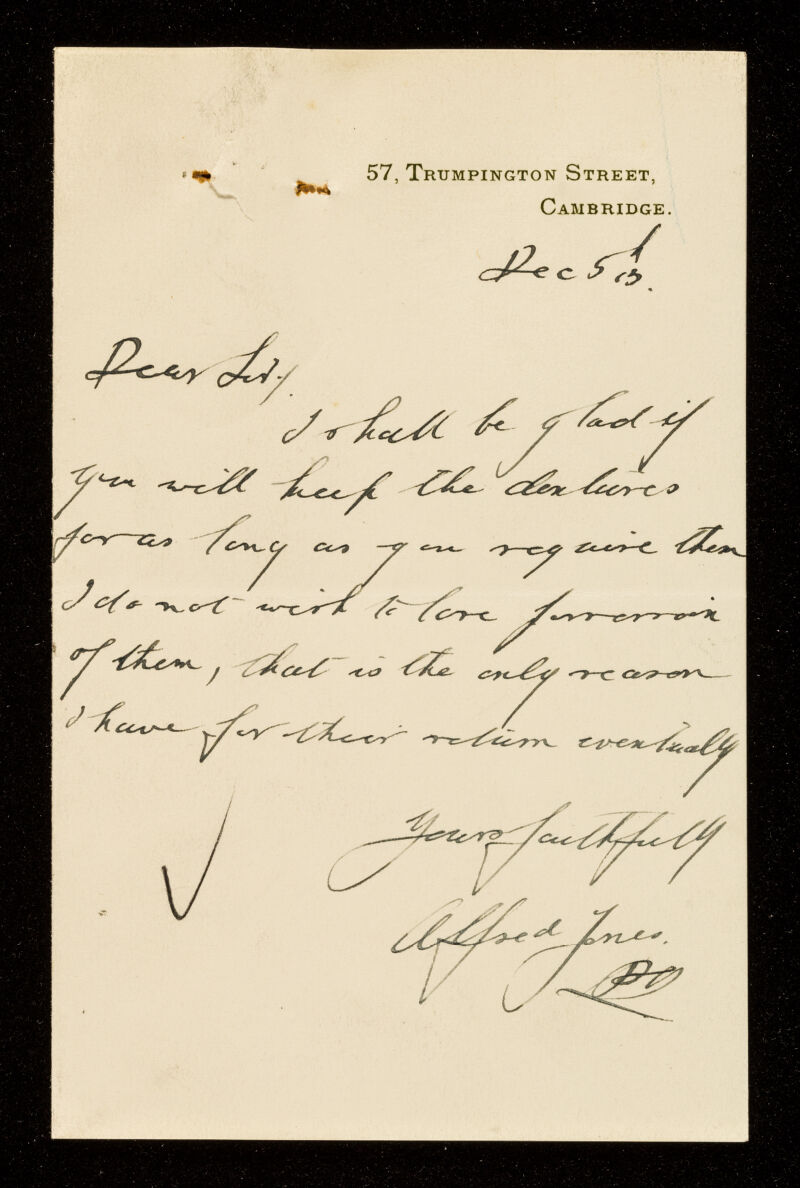 57, TRUMPINGTON STREET,
CAMBRIDGE.
Dec 5th 13.
Dear Sir,
I shall be glad if
you will keep the dentures
for as long as you require them
I do not wish to lose possession
of them, that is the only reason
I have for their return eventually
Yours faithfully
Alfred Jones.